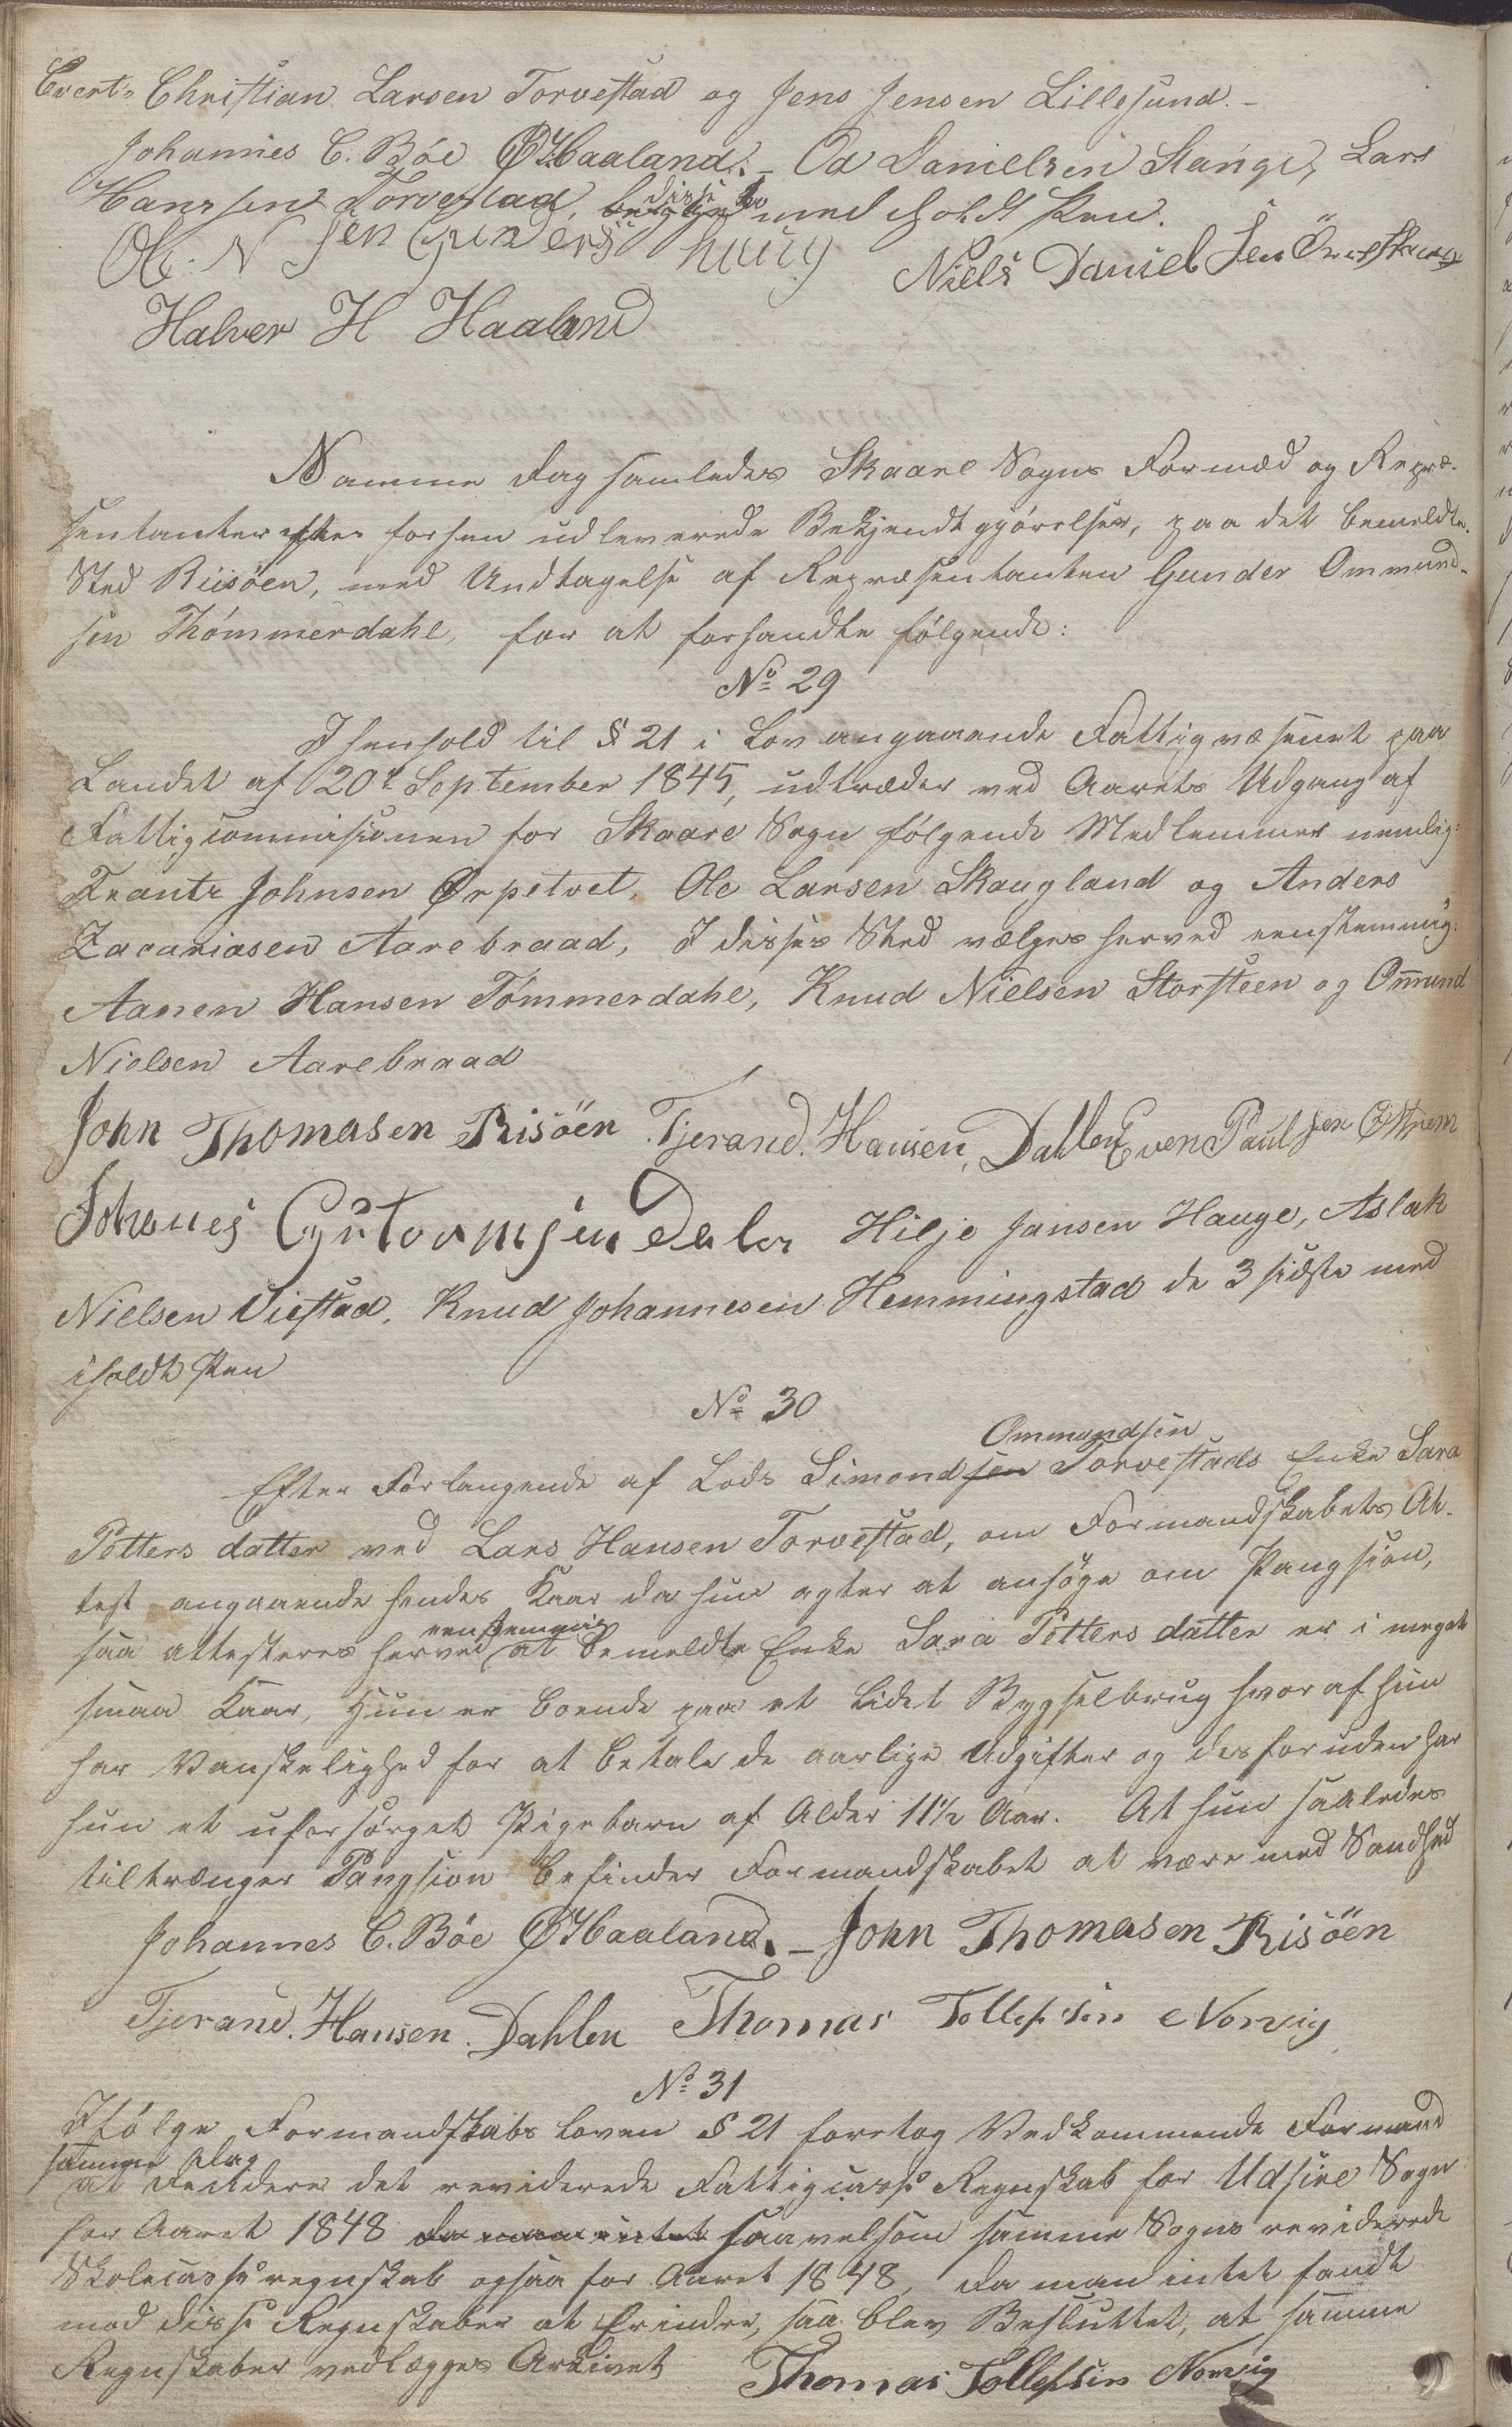 Evert Christian Larsen Torvestad og Jens Jensen Lillesund. -
Johannes C. Böe Ø Haaland. - Od Danielsen Stange, Lars
Hans sen Torvestad, disse med iholdt Pen.
Ole N sen Gunders haug Niels Daniel sen
Halver H Haaland
Samme Dag samledes Skaare Sogns Formæd og Repræ-
sentanter efter forhen udleverede Bekjendtgjörelser, paa det bemeldte
Sted Riisöen, med Undtagelse af Repræsentanten Gunder Ommund-
sen Thömmerdahl, for at forhandle fölgende:
No 29
I henhold til § 21 i Lov angaaende Fattigvæsenet paa
Landet af 20t September 1845, udtræder ved Aarets Udgang af
Fattigcommisionen for Skaare Sogn fölgende Medlemmer nemlig:
Frantz Johnsen Ørpetvet, Ole Larsen Skaugland og Anders
Zacariasen Aarebraad, I disses Sted vælges herved eenstemmig:
Aanen Hansen Tömmerdahl, Knud Nielsen Storsteen og Om̄und
Nielsen Aarebraad
John Thomasen Risöen Tjerand. Hansen, Dahlen Even Paulsen Østrem
Johanes Gutormsen Dahler Hilje Jansen Hauge, Aslak
Nielsen Viestad, Knud Johannesen Hemmingstad de 3 sidste med
iholdt Pen
No 30
Ommundsen
Efter Forlangende af Lods Simond sen Torvestads Enke Sara
Petters datter ved Lars Hansen Torvestad, om Formandskabets At-
test angaaende hendes Kaar da hun agter at ansöge om Pangsion,
eenstemmig
saa attesteres herved at bemeldte Enke Sara Petters datter er i meget
smaa Kaar, Hun er boende paa et Lidet Bygselbrug hvoraf hun
har Vanskelighed for at betale de aarlige Udgifter og desforuden har
hun et uforsörget Pigebarn af Alder 11½ Aar. At hun saaledes
tiltrænger Pangsion befinder Formandskabet at være med Sandhed
Johannes C. Böe Ø Haaland. - John Thomasen Risöen
Tjerand. Hansen. Dahlen Thomas Tollefsen Norvig
No 31
Ifölge Formandskabs loven § 21 foretog Vedkommende Formand
samme Dag
at Decidere det reviderede Fattigcasse Regnskab for Udsire Sogn
for Aaret 1848 da man intet saavelsom samme Sogns reviderede
Skolecasse regnskab ogsaa for Aaret 1848, da man intet fandt
mod disse Regnskaber at Erindre, saa blev Besluttet, at samme
Regnskaber vedlægges Arkivet Thomas Tollefsen Norvig